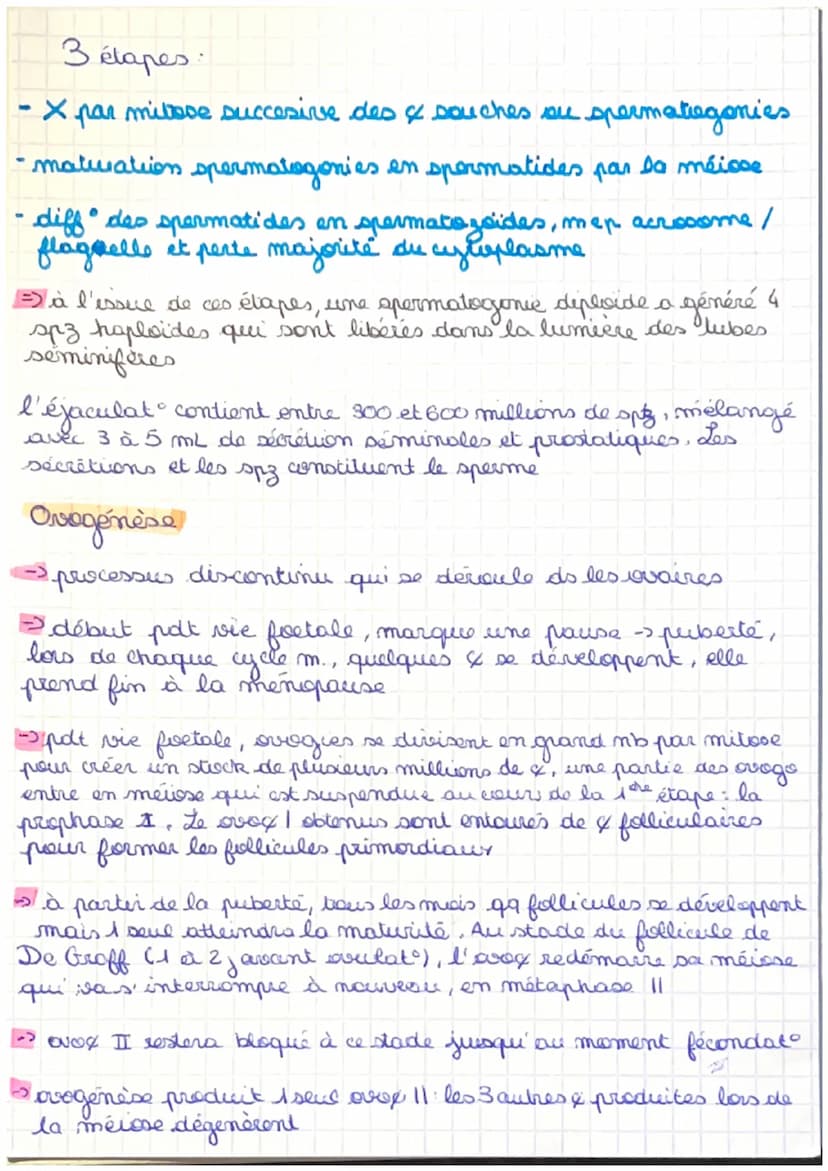 3 étapes :
- X par mitose succesive des ¢ souches ou spermatogonies
- maturation spermatogonies en spermatides par la méiose
- diff° des spermatides en spermatozoïdes, mep acrosome /
flagelle et perte majorité du cytoplasme
=> à l'issue de ces étapes, une spermatogonie diploïde a généré 4
spz haploïdes qui sont libérés dans la lumière des tubes
séminifères
l'éjaculat° contient entre 300 et 600 millions de spz, mélangé
avec 3 à 5 mL de sécrétion séminales et prostatiques. Les
sécrétions et les spz constituent le sperme
Ovogénèse
-> processus discontinu qui se déroule ds les ovaires
-> début pdt vie foetale, marque une pause -> puberté,
lors de chaque cycle m., quelques ¢ se développent, elle
prend fin à la ménopause
-> pdt vie foetale, ovogies se divisent en grand nb par mitose
pour créer un stock de plusieurs millions de ¢, une partie des ovogo
entre en méiose qui est suspendue au cours de la 1ère étape : la
prophase I. Le ovo¢ I obtenus sont entourés de ¢ folliculaires
pour former les follicules primordiaux
-> à partir de la puberté, tous les mois qq follicules se développent
mais 1 seul atteindra la maturité. Au stade du follicule de
De Graff (1 à 2 j avant ovulat°), l'ovo¢ redémarre sa méiose
qui va s'interrompre à nouveau, en métaphase II
-> ovo¢ II restera bloqué à ce stade jusqu'au moment fécondat°
-> ovogénèse produit 1 seul ovo¢ II : les 3 autres ¢ produites lors de
la méiose dégénèrent